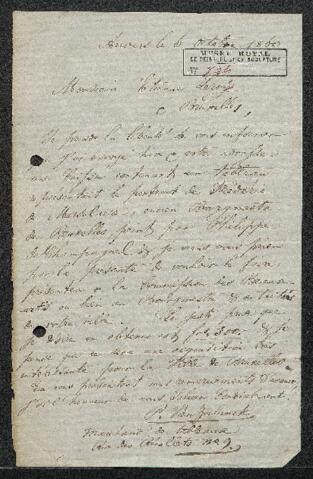 Anvers le 6 octobre 1860
MUSÉE ROYAL
DE PEINTURE ET DE SCULPTURE
N°
Monsieur Etienne Leroy
à Bruxelles,
Je prends la liberté de vous informer
que j'envoye à votre
une caisse contenant un tableau
représentant le portrait de
de ancien Bourgmestre
de Bruxelles peint par Philippe
de Champaigne, et je viens vous prier
par la présente de vouloir le faire
présenter à la commission des Beaux
arts ou bien au Bourgmestre &
de votre ville. Le juste prix que
je en obtenir est frs 300. & je
pense que ce sera une acquisition très
intéressante pour la Ville de Bruxelles.
En vous présentant mes remerciments d'avance,
j'ai l'honneur de vous saluer cordialement.
P. Van
Marchand de Tableaux
des N° 9